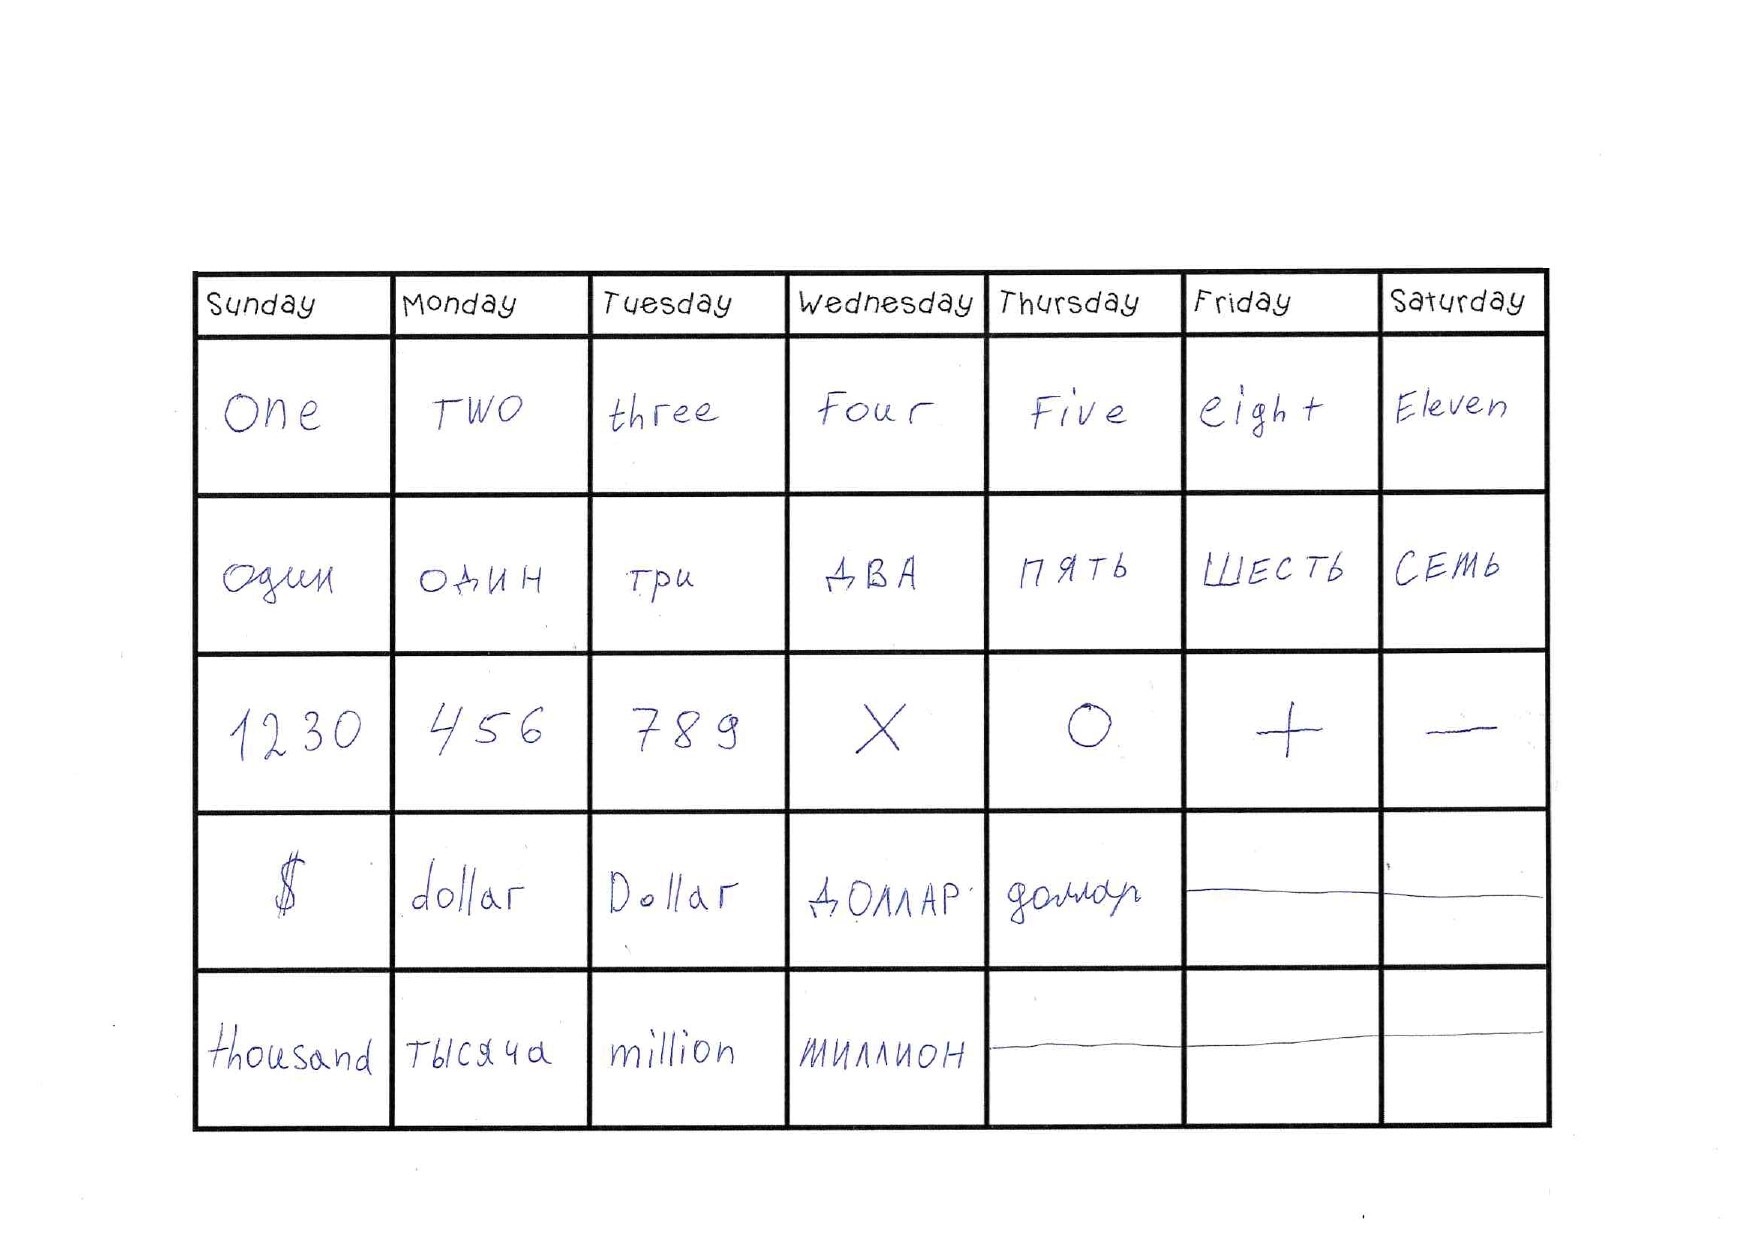 Sunday Monday Tuesday Wednesday Thursday Friday Saturday
One TWO three Four Five eight Eleven
один ОДИН три ДВА ПЯТЬ ШЕСТЬ СЕМЬ
1230 456 789 X O + —
$ dollar Dollar ДОЛЛАР доллар
thousand тысяча million МИЛЛИОН